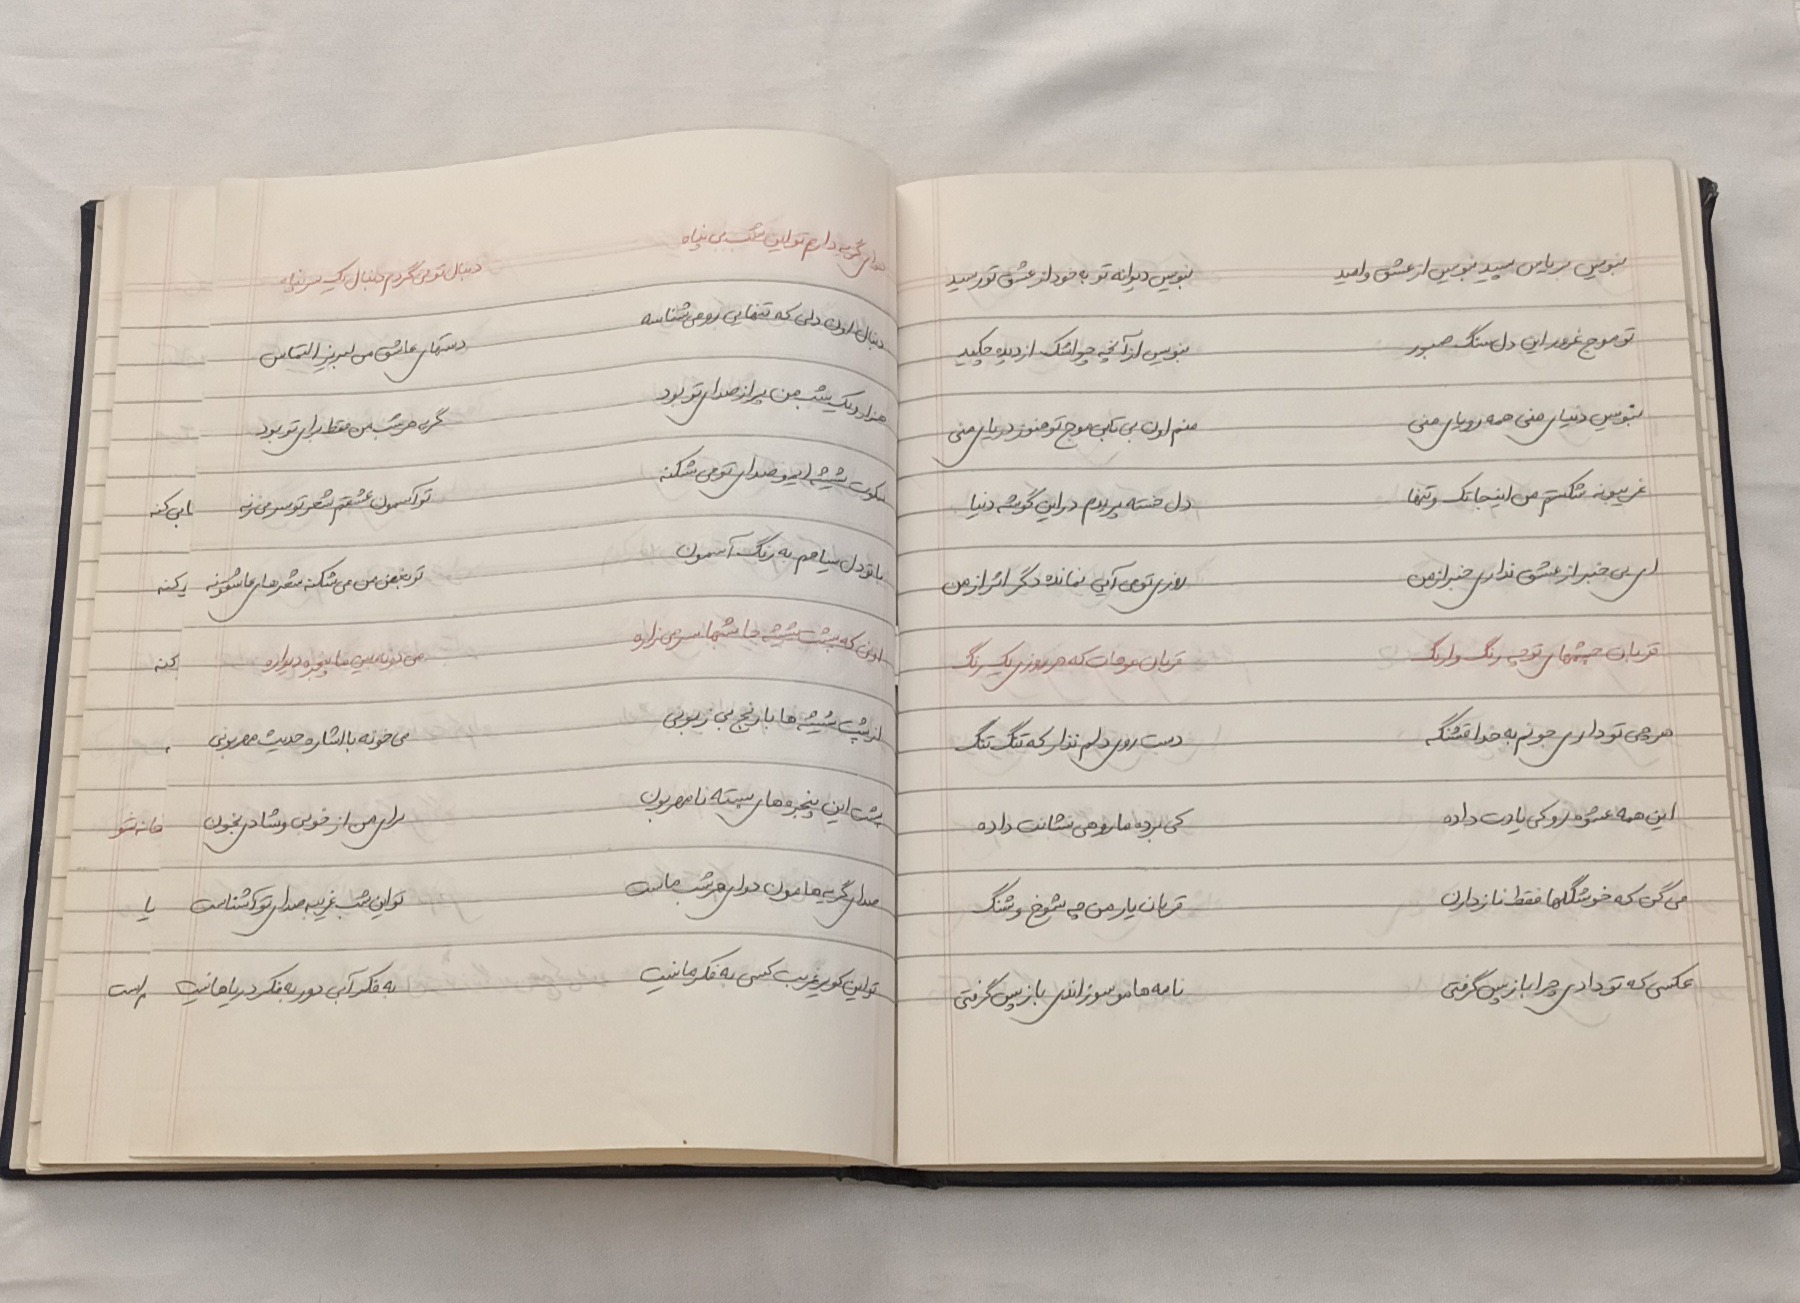 بنویس بر یاس سپید بنویس از عشق و امید بنویس دیوانه تو به خود از عشق تو رسید
تو موج غرور این دل سنگ صبور بنویس از آنچه چو اشک از دیده چکید
بنویس دنیای منی همه رویای منی منم اون بی تابی موج تو هنوز دریای منی
غریبونه شکستم من اینجا تک و تنها دل خسته پریدم در این گوشه دنیا
ای بی خبر از عشق نداری خبر از من روزی تو می آیی نمانده دگر اثر از من
قربان چشمهای تو چه رنگ وارنگ قربان موهات که هر روزی یک رنگ
هر چی تو داری جونم به خدا قشنگه دست روی دلم نذار که تنگ تنگ
این همه عشوه رو کی یادت داده کی برده ما رو می نشانت داده
می گن که خوشگلها فقط ناز دارن قربان یار من چه شوخ و شنگ
عکسی که تو دادی چرا باز پس گرفتی نامه هامو سوزاندی باز پس گرفتی
هوای گریه دارم تو این شب بی پناه دنبال تو می گردم دنبال یک سر پناه
دنبال اون دلی که تنهایی رو می شناسه دستهای عاشق من لبریز التماس
هزار و یک شب من پر از صدای تو بود گریه هر شب من فقط برای تو بود
سکوت شیشه ایمو صدای تو می شکنه تو آسمون عشقم شعر تو سر می زنه
با تو دل سیاهم به رنگ آسمون تو بغض من می شکنه شعرهای عاشقونه
اونی که پشت شیشه جا شبها سر می زاره می دونه بین ما پنجره دیواره
از پشت شیشه ها با رنج بی زبونی می خونه با اشاره حدیث مهربونی
پشت این پنجره های بسته نامهربون برای من از خوبی و شادی بخون
صدای گریه هامون دوای هر شب ماست تو این شب غریبه صدای تو آشناست
تو این کویر غربت کسی به فکر ما نیست به فکر آبی دور به فکر دریا ها نیست